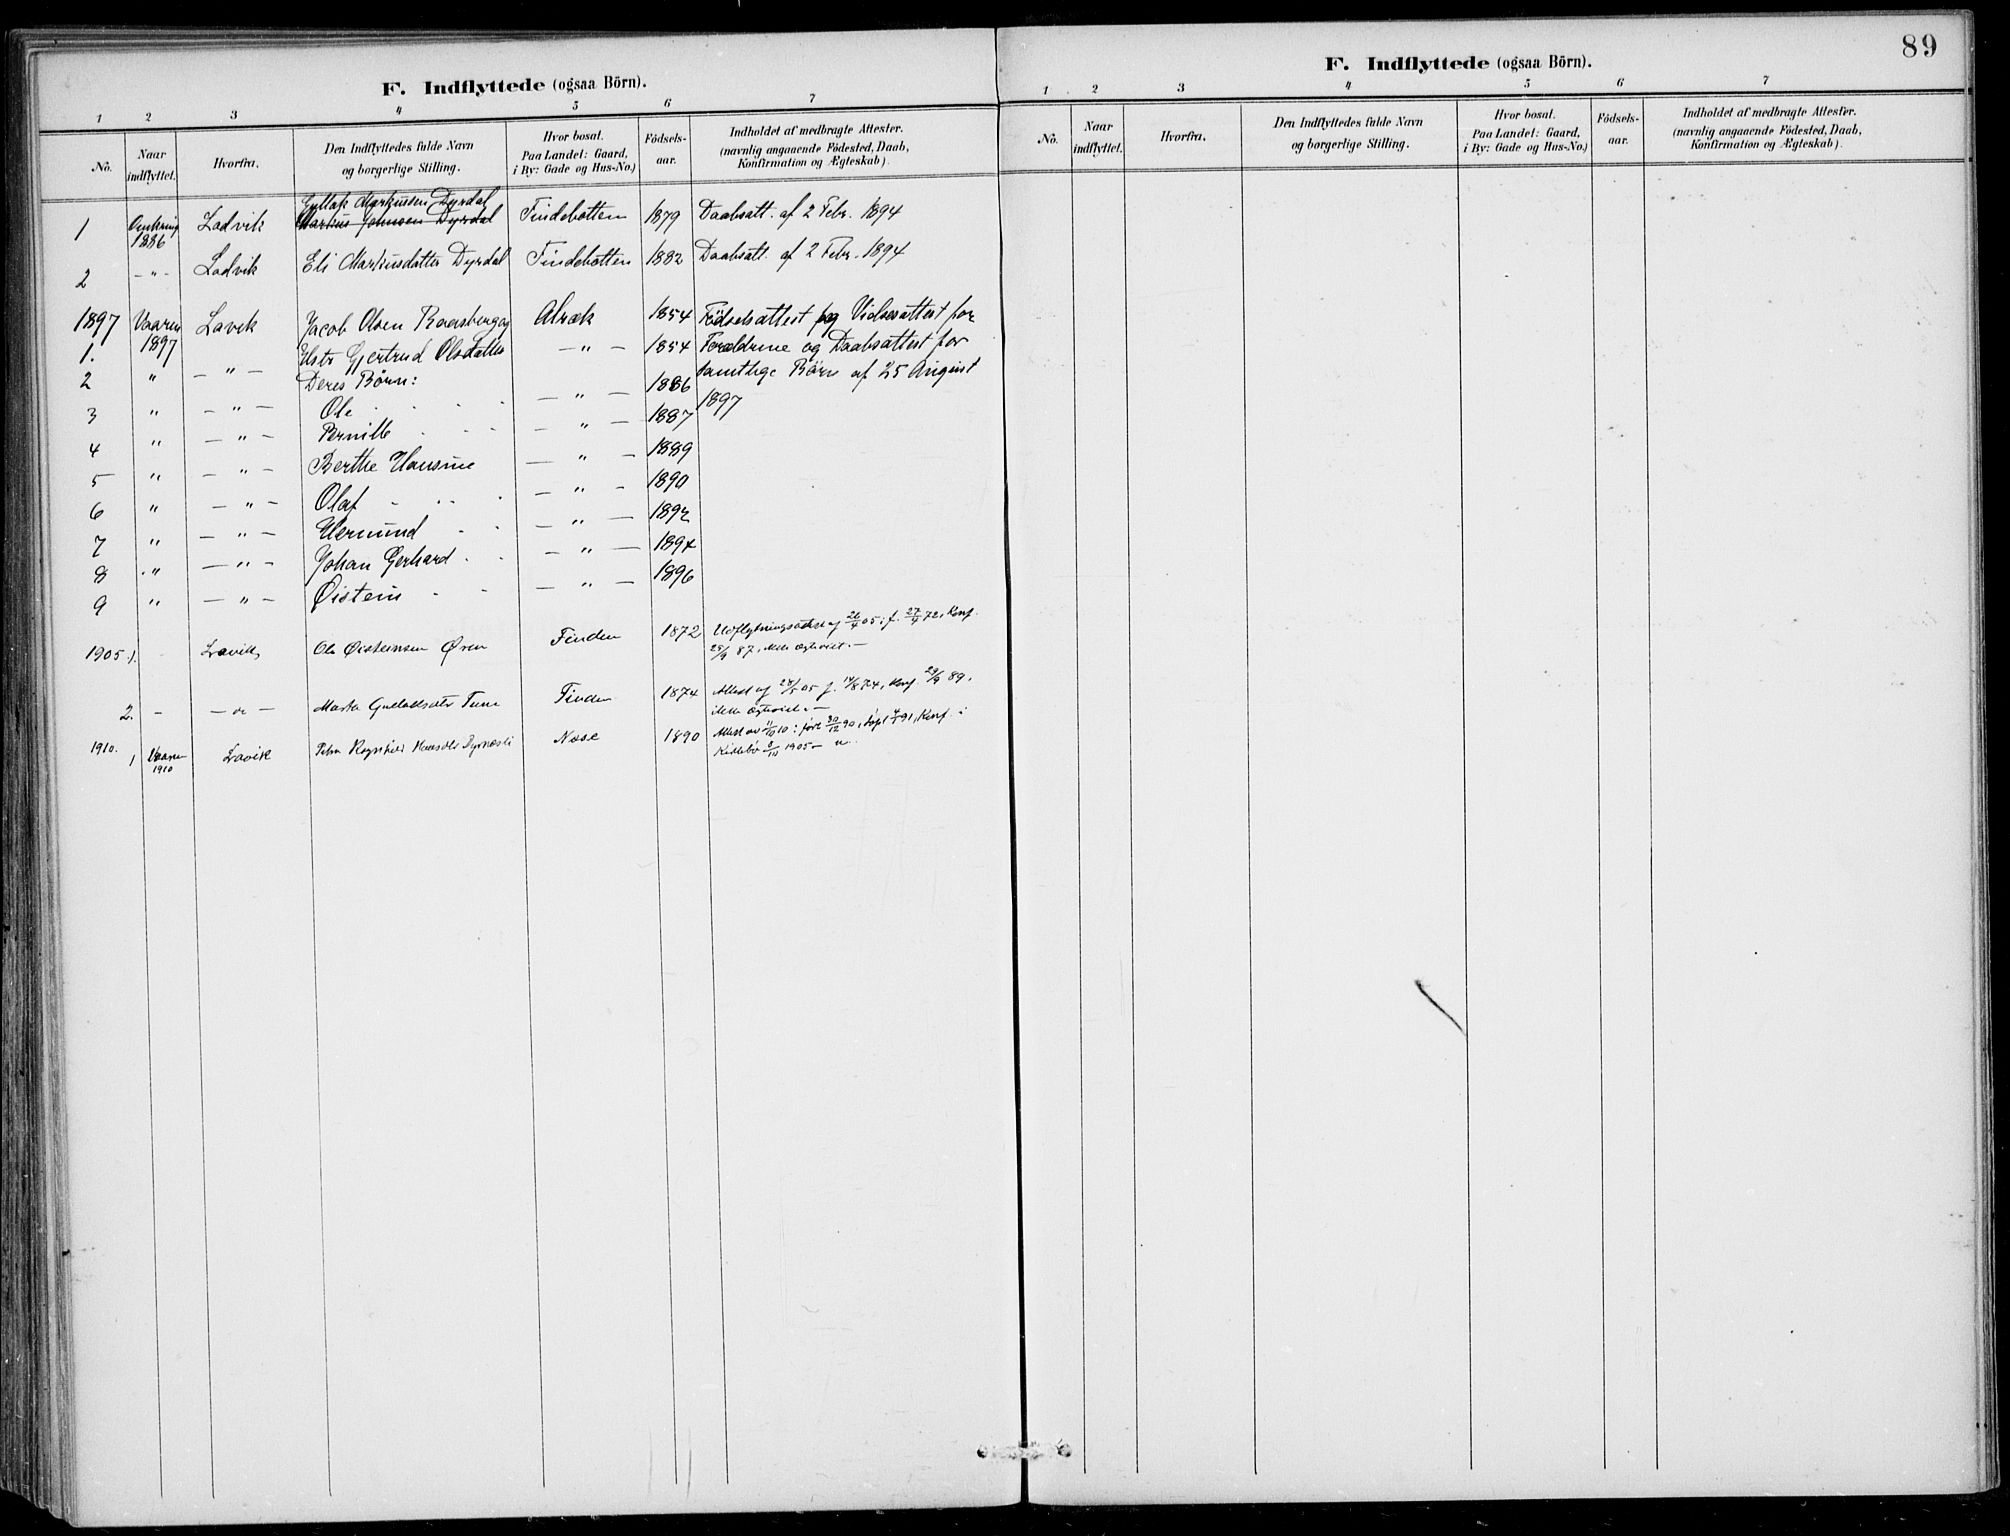 89
F. Indflyttede (ogsaa Börn).
1 2 3 4 5 6 7
No. Naar indflyttet. Hvorfra. Den Indflyttedes fulde Navn og borgerlige Stilling. Hvor bosat. Paa Landet: Gaard, i By: Gade og Hus-No.) Födsels-aar. Indholdet af medbragte Attester. (navnlig angaaende Födested, Daab, Konfirmation og Ægteskab).
Markussen Dyrdal
1 Omkring 1886 Ladvik Markus Johnsen Dyrdal Findebotten 1879 Daabsatt. af 2 Febr. 1894
2 -"- Ladvik Eli Markusdatter Dyrdal Findebotten 1882 Daabsatt. af 2 Febr. 1894
1897 Vaaren Lavik Jacob Olsen Alræk 1854 Födselsattest og for
1. 1897 Gjertrud Olsdatter — " — 1854 Forældrene og Daabsattest for
2 " — " — Deres Börn: samtlige Börn af 25 August
3 " — " — Ole — " — 1886 1897
4 " — " — Pernille — " — 1887
5 " — " — Berthe Hansine — " — 1889
6 " — " — Olaf — " — 1890
7 " — " — Hermund — " — 1892
8 " — " — Johan Gerhard — " — 1894
9 " — " — Öistein — " — 1896
1905 1. Lavik Ole Øisteinsen Øren Finden 1872 Udflytningsattest af 26/4 05, f. 27/4 72, Konf.
87, ikke ægteviet. —
2. - Marta Tune Finden 1874 Attest af 28/5 05 f. 14/8 74, Konf. 29/9 89,
ikke ægteviet. —
1910. 1 Vaaren 1910 Lavik Petra Ragnhild Nese 1890 Attest av 11/10 10: født 30/12 90, døpt 4/1 91, Konf. i
1905
F. Indflyttede (ogsaa Börn).
1 2 3 4 5 6 7
No. Naar indflyttet. Hvorfra. Den Indflyttedes fulde Navn og borgerlige Stilling. Hvor bosat. Paa Landet: Gaard, i By: Gade og Hus-No.) Födsels-aar. Indholdet af medbragte Attester. (navnlig angaaende Födested, Daab, Konfirmation og Ægteskab).